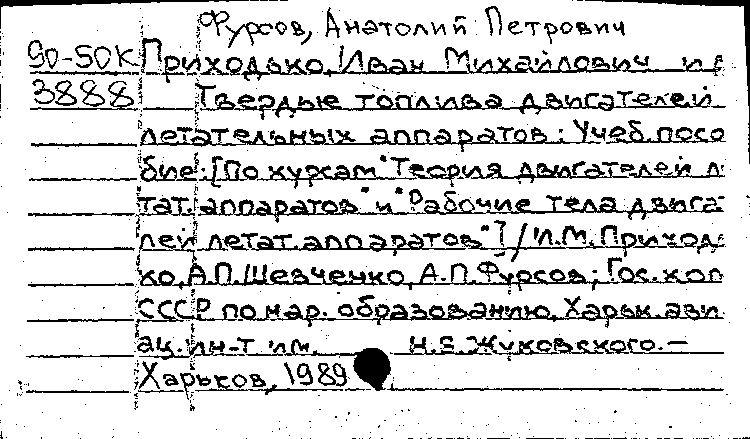 Фурсов, Анатолий Петрович
90-50К Приходько, Иван Михайлович и
3888 Твердые топлива двигателей
летательных аппаратов: Учеб. посо
бие: [По курсам "Теория двигателей л
тат. аппаратов" и "Рабочие тела двига-
лей летат. аппаратов"] / И.М. Приходь
ко, А.П. Шевченко, А.П. Фурсов; Гос. ком
СССР по нар. образованию, Харьк. ави
ац. ин-т им. Н.Е. Жуковского. —
Харьков, 1989